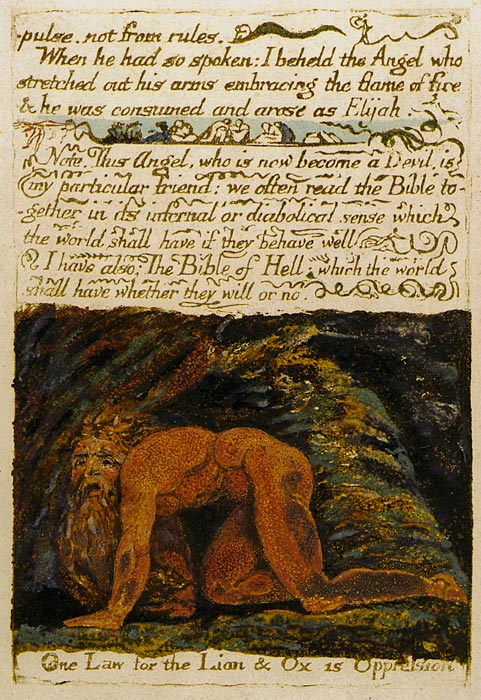 pulse. not from rules.
When he had so spoken: I beheld the Angel who
stretched out his arms embracing the flame of fire
& he was consumed and arose as Elijah.
Note. This Angel, who is now become a Devil, is
my particular friend: we often read the Bible to-
gether in its infernal or diabolical sense which
the world shall have if they behave well
I have also: The Bible of Hell: which the world
shall have whether they will or no.
One Law for the Lion & Ox is Oppression